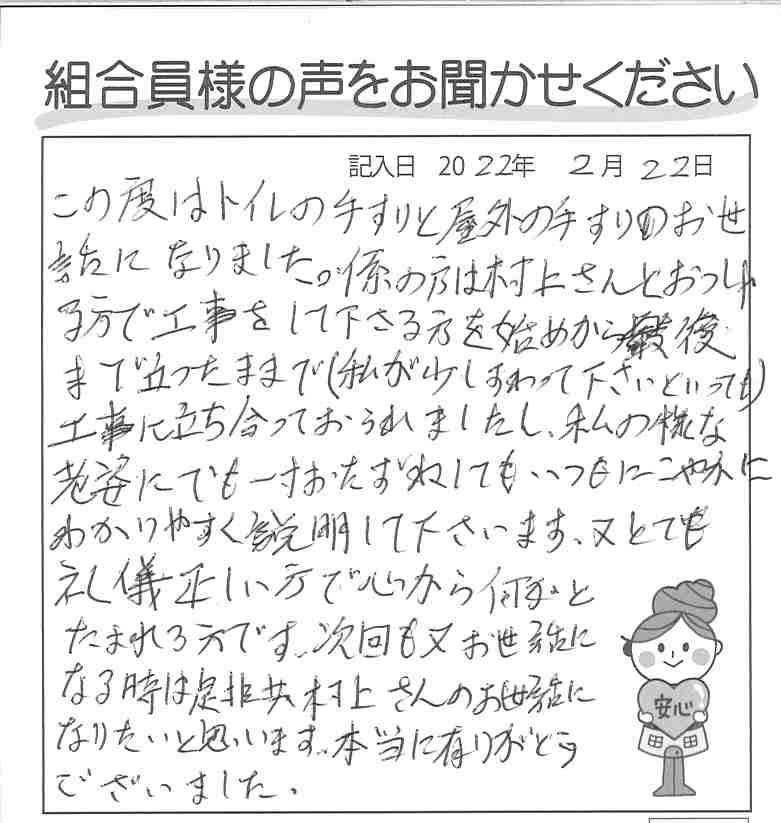 組合員様の声をお聞かせください
記入日 2022年 2月 22日
この度はトイレの手すりと屋外の手すりのお世
話になりました。係の方は村上さんとおっしゃ
る方で工事をして下さる方を始めから最後
まで立ったままで(私が少しすわって下さいといっても)
工事に立ち合っておられましたし、私の様な
老婆にでも一寸おたずねしてもいつもにこやかに
わかりやすく説明して下さいます、又とても
礼儀正しい方で心から
たまれる方です、次回も又お世話に
なる時は是非共村上さんのお世話に
なりたいと思います、本当に有りがとう
ございました、
安心